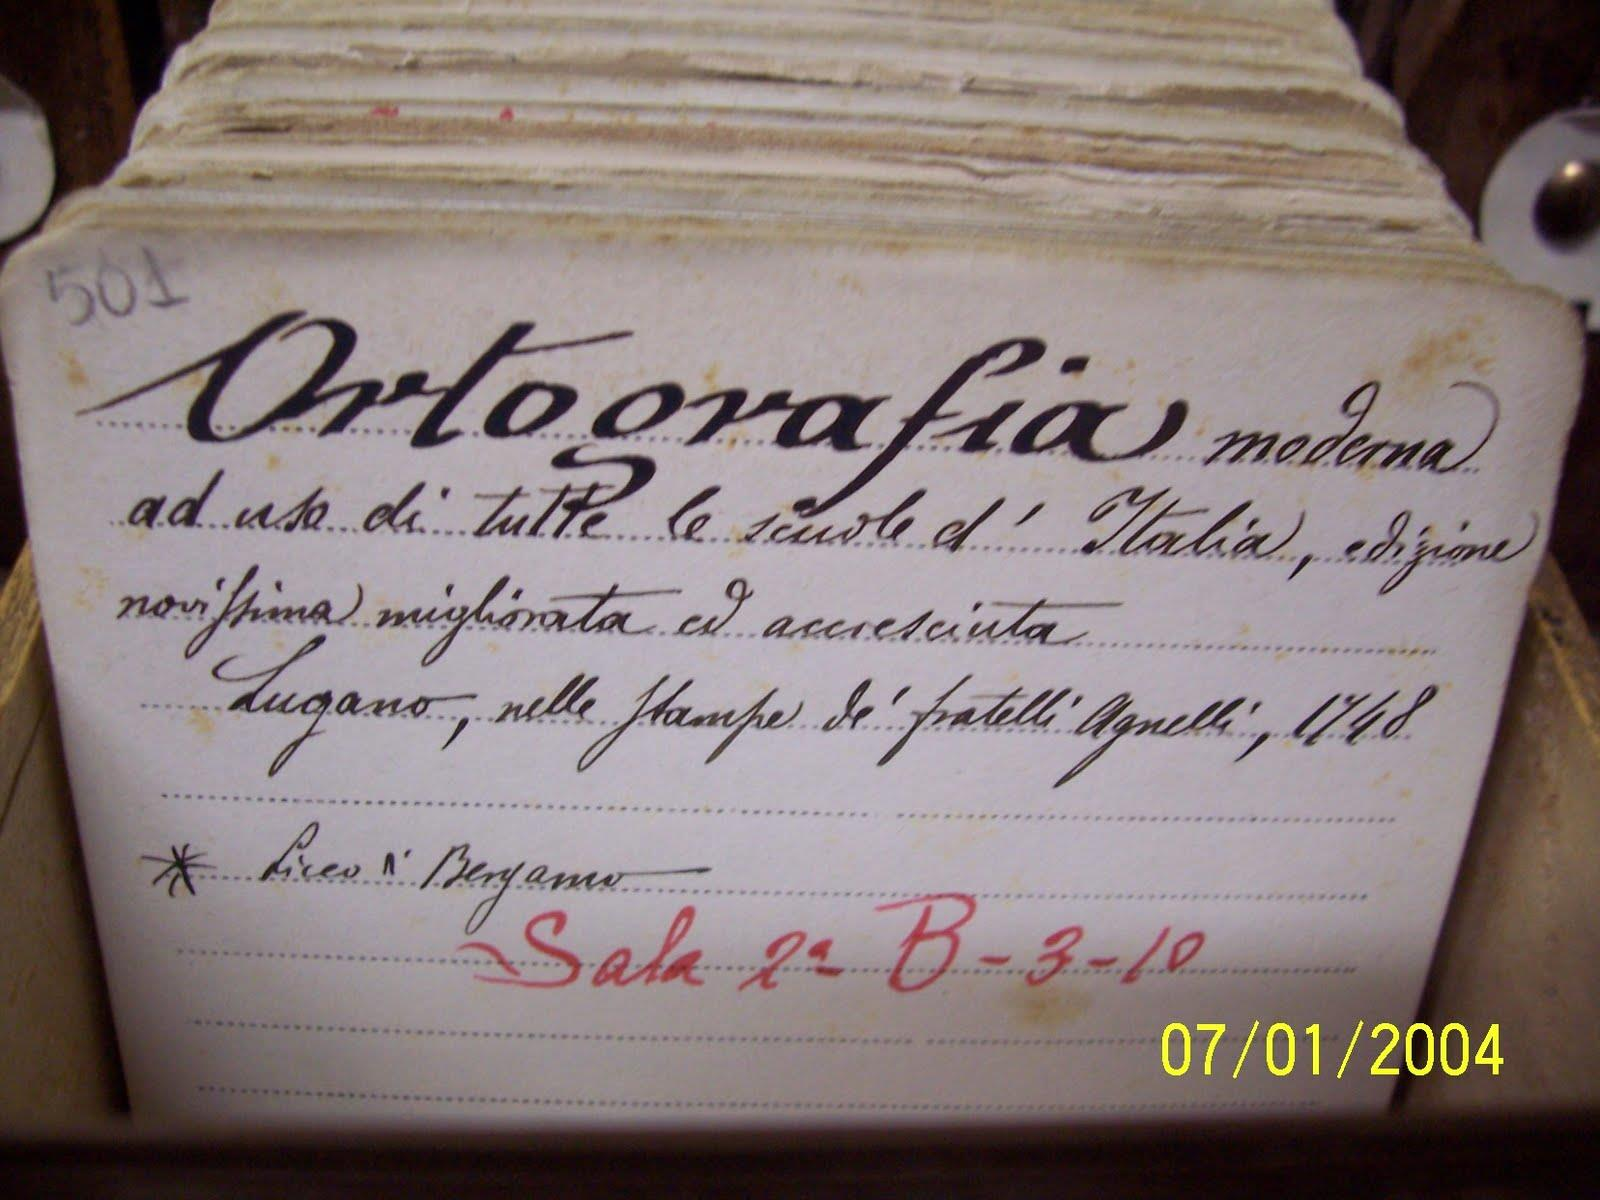 501
Ortografia moderna
ad uso di tutte le scuole d' Italia, edizione
novissima migliorata ed accresciuta
Lugano, nelle stampe de' fratelli Agnelli, 1748
* Liceo di Bergamo
Sala 2a B-3-10
07/01/2004